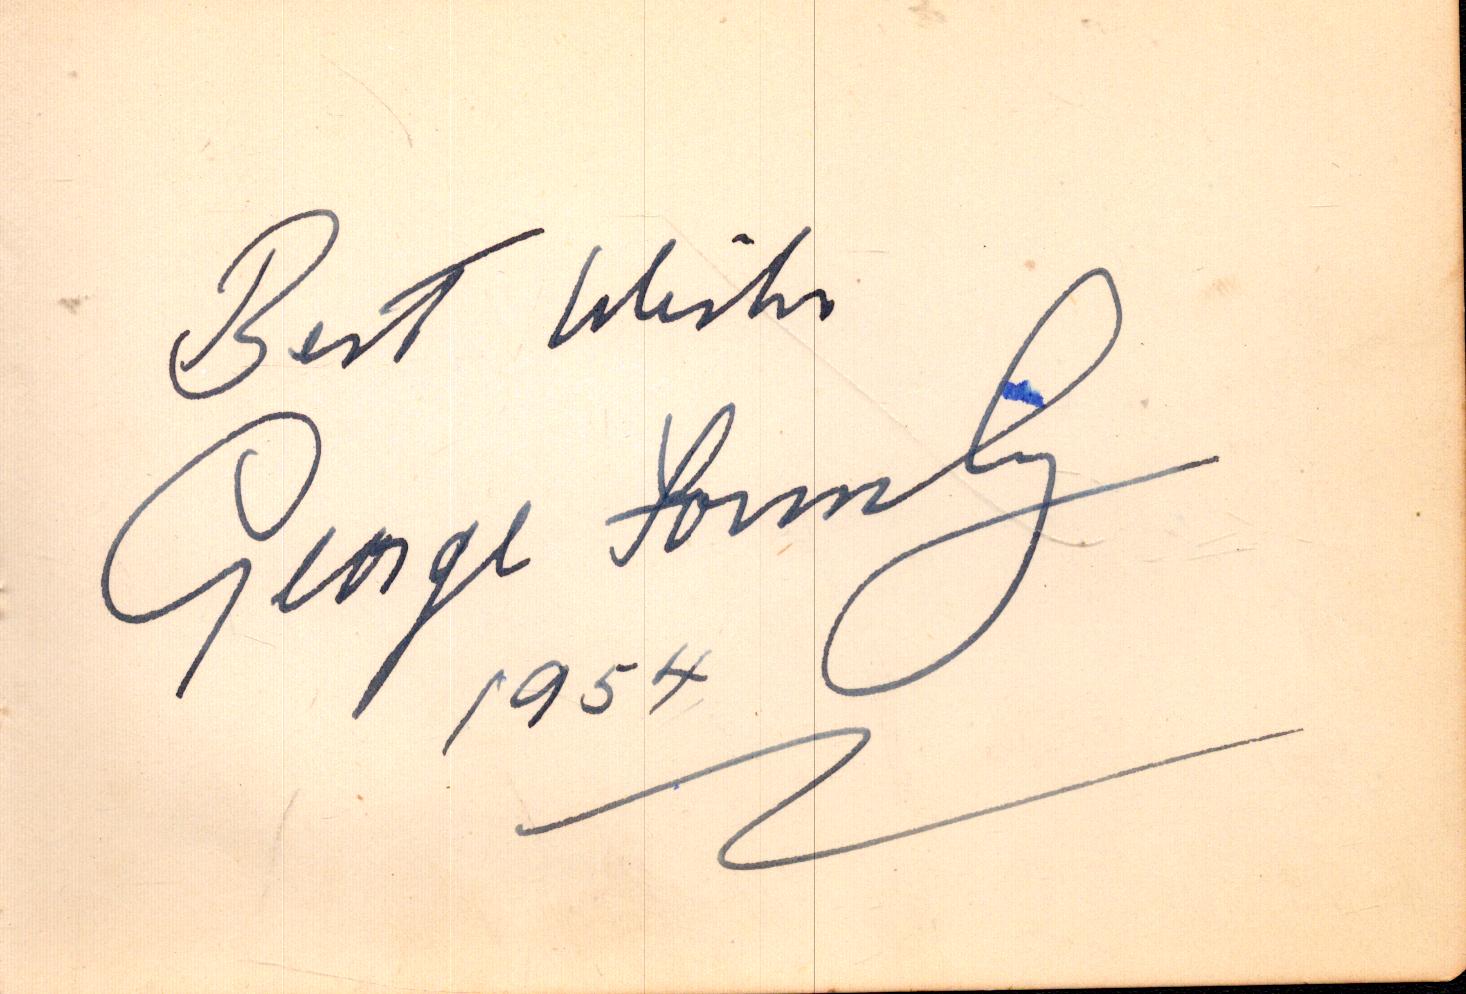 Best Wishes
George Formby
1954